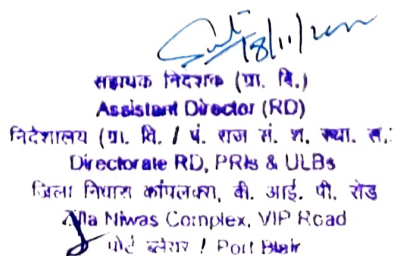 18/11/2022
सहायक निदेशक (ग्रा. वि.)
Assistant Director (RD)
निदेशालय (ग्रा. वि. / पं. राज सं. श. स्था. स.
Directorate RD, PRIs & ULBs
जिला निवास कॉंपलक्स, वी. आई. पी. रोड
Zilla Niwas Complex, VIP Road
पोर्ट ब्लेयर / Port Blair